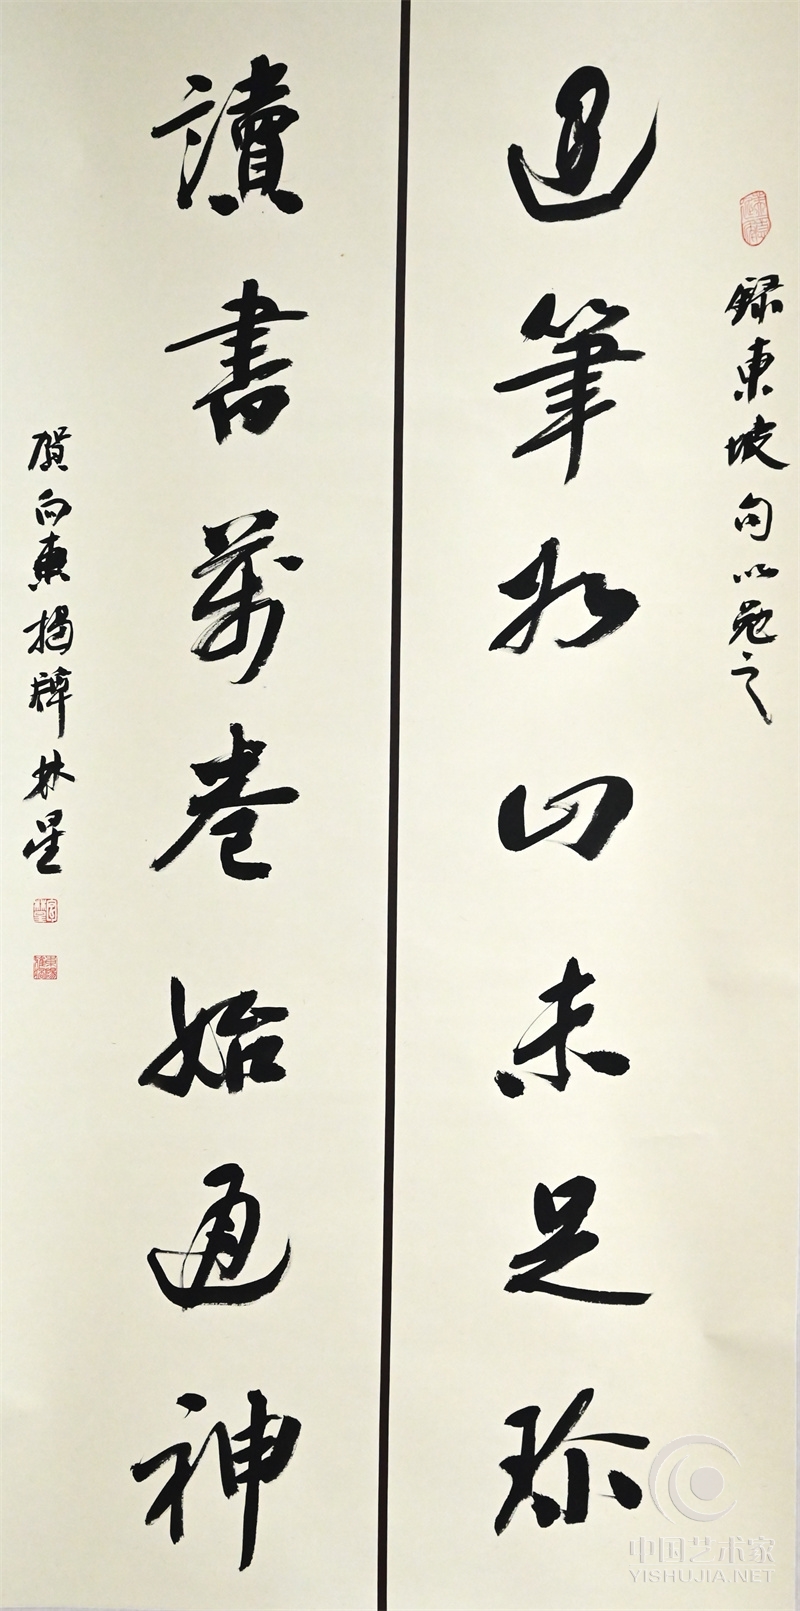 錄東坡句以勉之
退筆如山未足珍
讀書萬卷始通神
賀向東揭牌林星
中国艺术家
YISHUJIA.NET